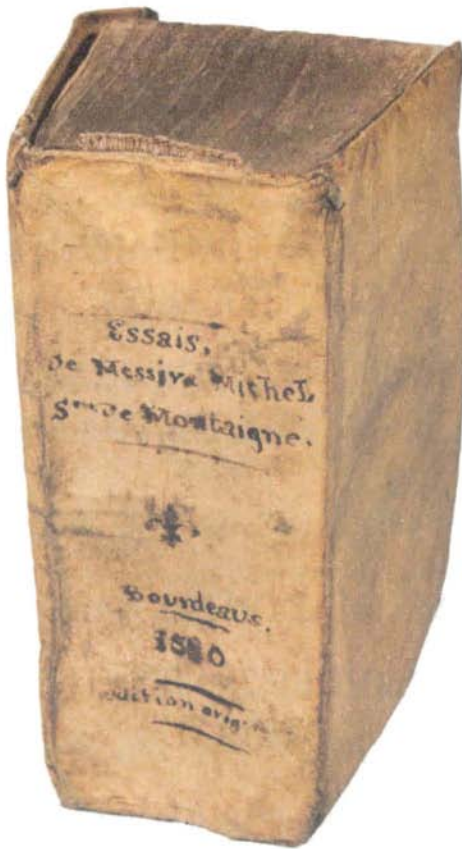 Essais,
De Messire Michel
Sr. De Montaigne.
Bourdeaus.
1580
edition orig